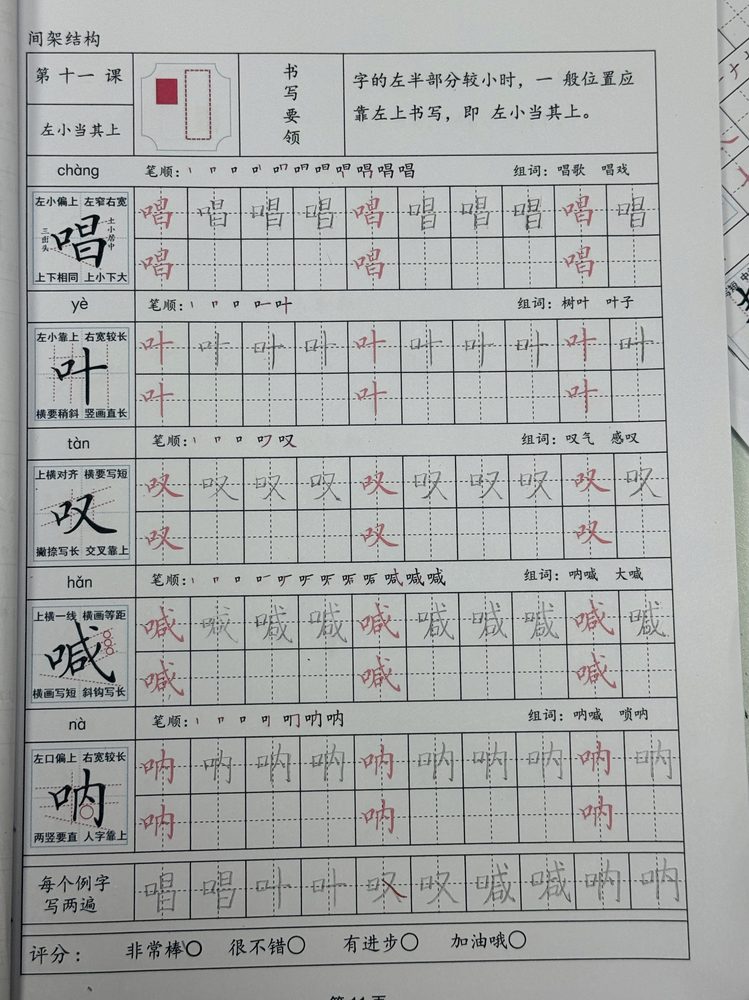 间架结构
第十一课
左小当其上
书写要领
字的左半部分较小时，一 般位置应
靠左上书写，即 左小当其上。
chàng 笔顺： 组词：唱歌 唱戏
左小偏上 左窄右宽
三出头 唱 土小居中
上下相同 上小下大
唱 唱 唱 唱 唱 唱 唱 唱 唱 唱
唱 唱 唱
yè 笔顺： 组词：树叶 叶子
左小靠上 右宽较长
叶
横要稍斜 竖画直长
叶 叶 叶 叶 叶 叶 叶 叶 叶 叶
叶 叶 叶
tàn 笔顺： 组词：叹气 感叹
上横对齐 横要写短
叹
撇捺写长 交叉靠上
叹 叹 叹 叹 叹 叹 叹 叹 叹 叹
叹 叹 叹
hǎn 笔顺： 组词：呐喊 大喊
上横一线 横画等距
喊
横画写短 斜钩写长
喊 喊 喊 喊 喊 喊 喊 喊 喊 喊
喊 喊 喊
nà 笔顺： 组词：呐喊 唢呐
左口偏上 右宽较长
呐
两竖要直 人字靠上
呐 呐 呐 呐 呐 呐 呐 呐 呐 呐
呐 呐 呐
每个例字
写两遍
唱 唱 叶 叶 叹 叹 喊 喊 呐 呐
评分： 非常棒○ 很不错○ 有进步○ 加油哦○